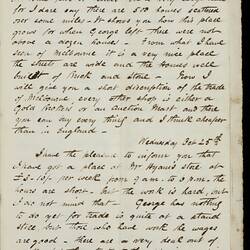 for I dare say there are 500 houses scattered
over some miles. It shows you how this place
grows for when George left there were not
above a dozen houses - From what I have
seen of Melbourne it is a very nice place
the streets are wide and the houses well
built of Brick and Stone - Now I
will give you a short discription of the trade
of Melbourne every other shop is either a
Gold Broker or an Auction Mart and there
you can buy every thing and I think cheaper
than in England -
Wednesday Oct 25th
I have the pleasure to inform you that
I have got a place at Mr Hyam's Store at
£2.10/- per week from 9 a.m. to 8 pm. the
hours are short - but the work is hard, but
I do not mind that - George has nothing
to do yet for trade is quite at a stand
still, but those who have work the wages
are good - there are a very deal out of